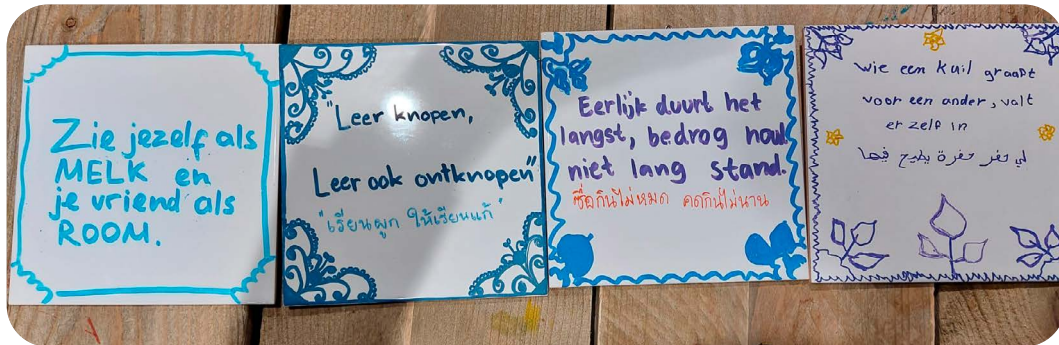 Zie jezelf als
MELK en
je vriend als
ROOM.
"Leer knopen,
Leer ook ontknopen"
"เรียนผูก ให้เรียนแก้"
Eerlijk duurt het
langst, bedrog houd
niet lang stand.
ซื่อกินไม่หมด คดกินไม่นาน
wie een kuil graapt
voor een ander, valt
er zelf in
لي حفر حفرة يطيح فيها